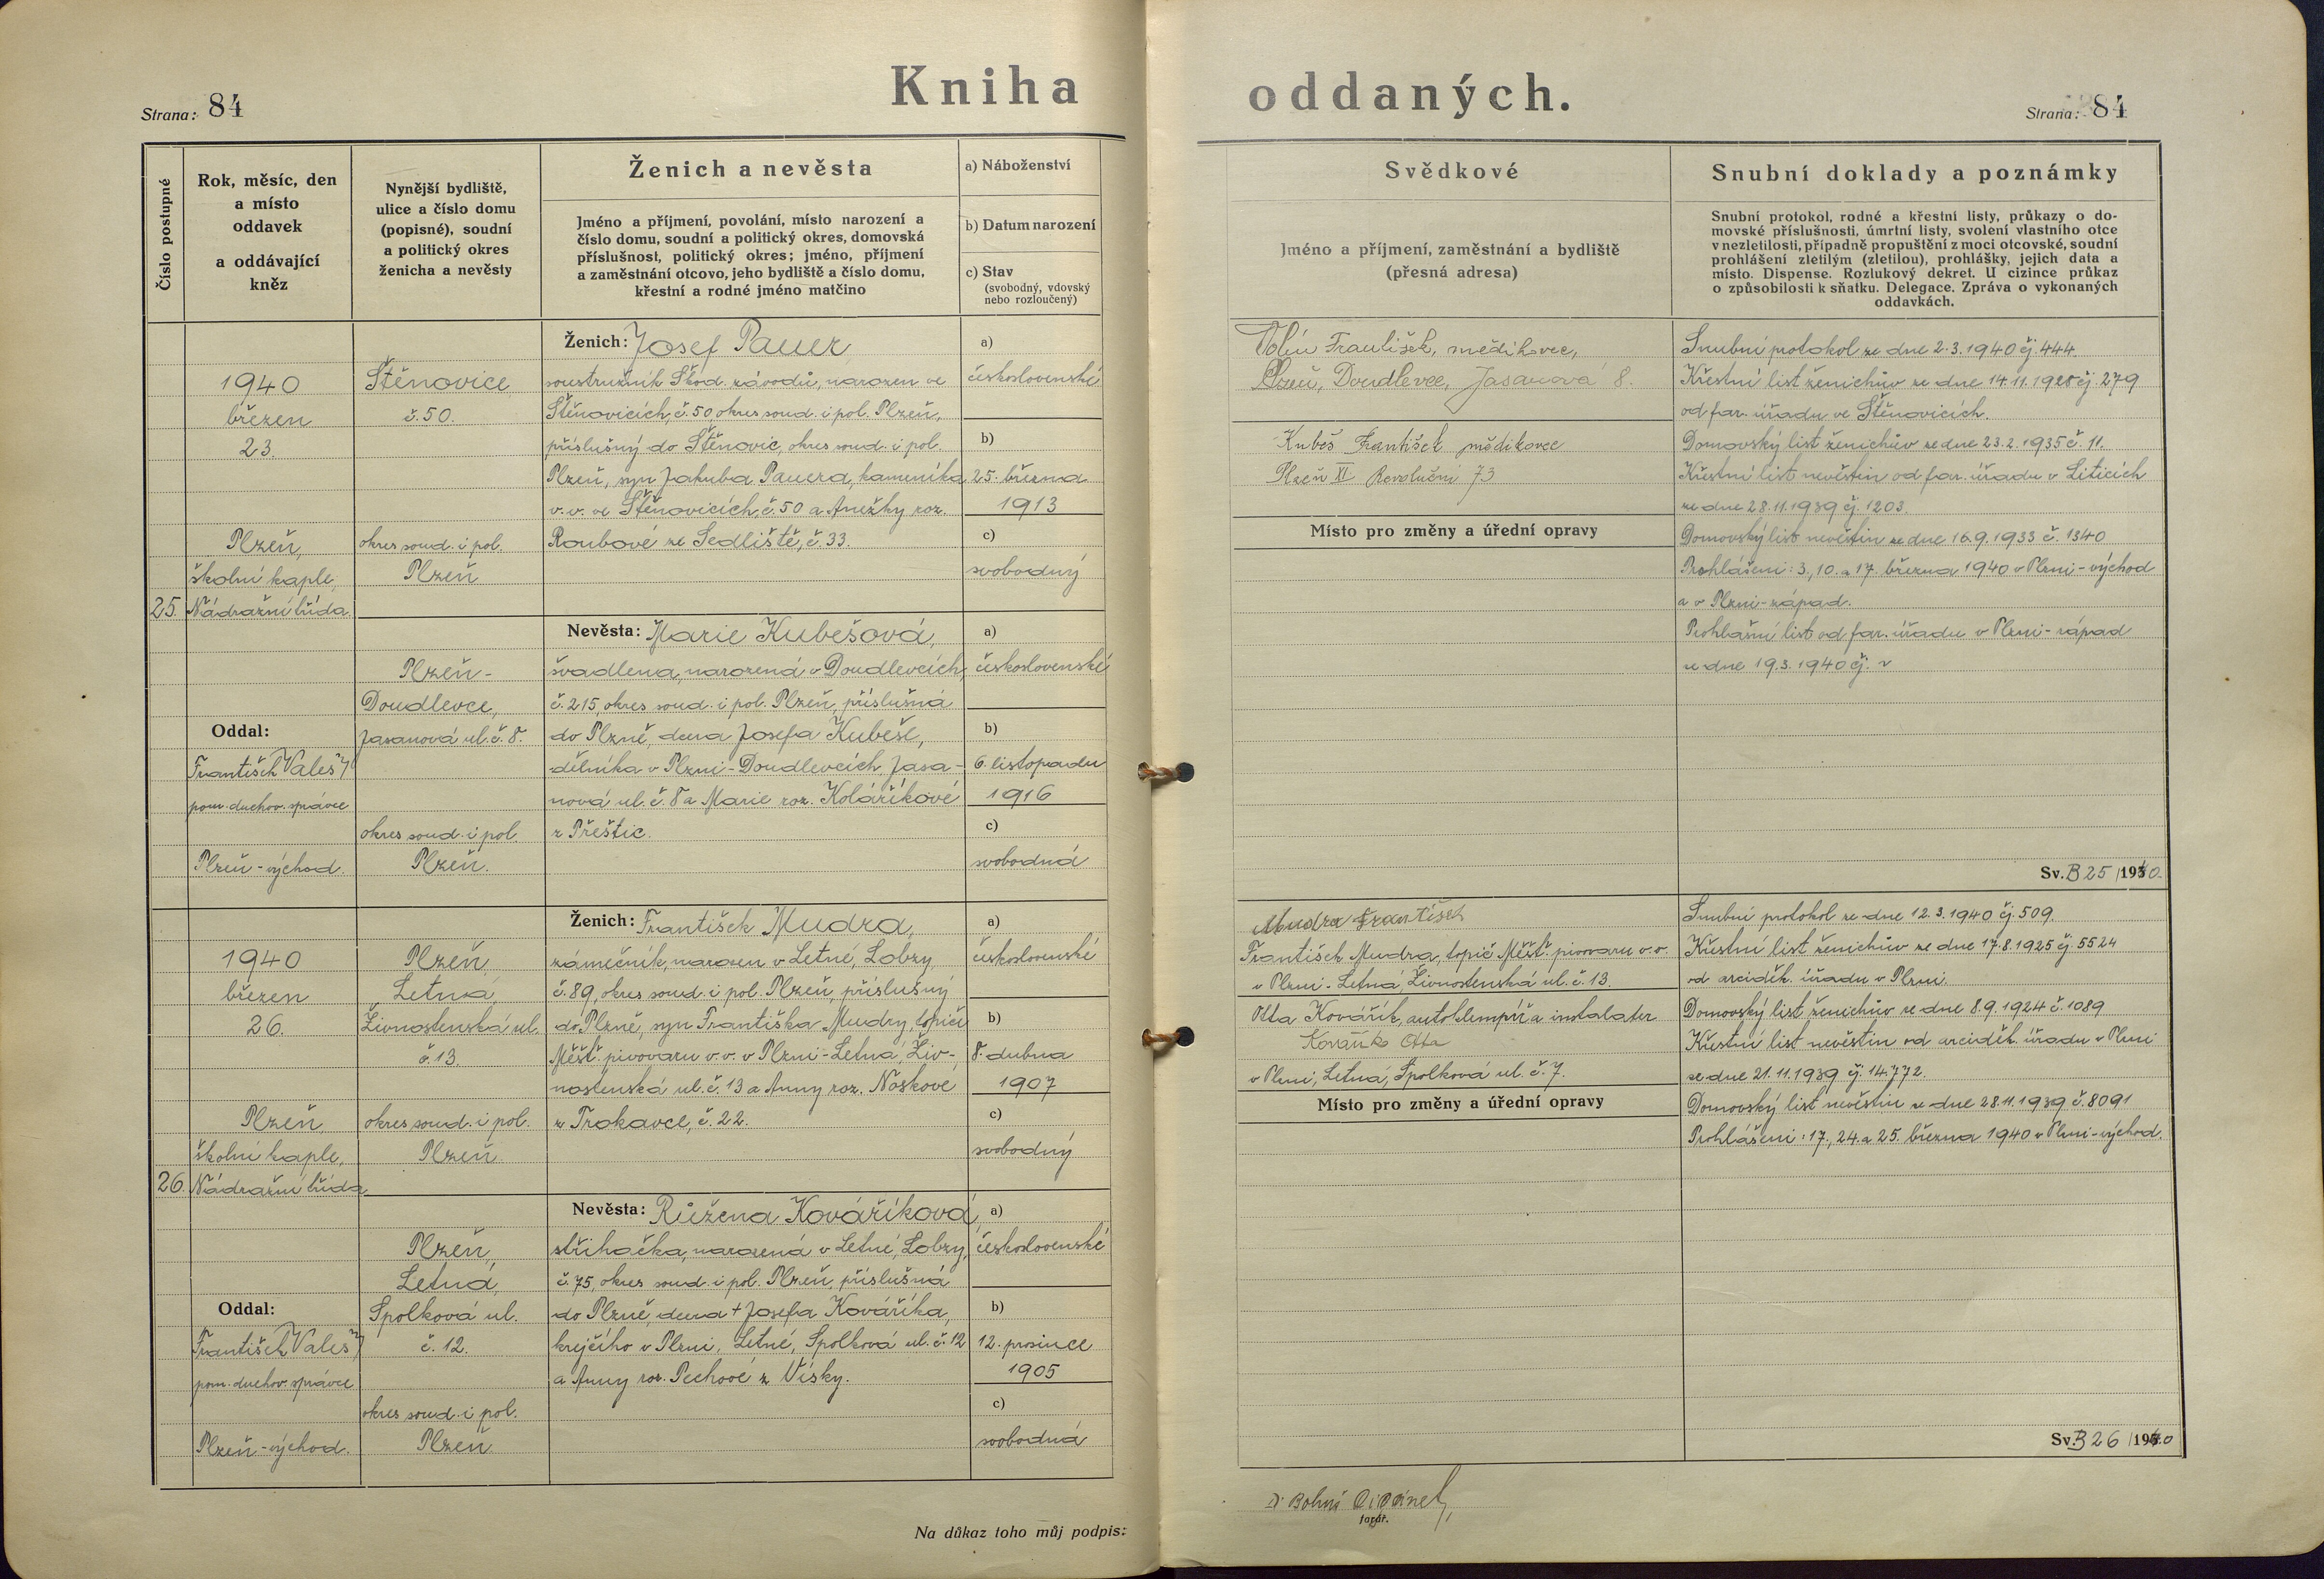 Kniha oddaných.
Strana: 84
Strana: 84
Číslo postupné
Rok, měsíc, den
a místo
oddavek
a oddávající
kněz
Nynější bydliště,
ulice a číslo domu
(popisné), soudní
a politický okres
ženicha a nevěsty
Ženich a nevěsta
Jméno a příjmení, povolání, místo narození a
číslo domu, soudní a politický okres, domovská
příslušnost, politický okres; jméno, příjmení
a zaměstnání otcovo, jeho bydliště a číslo domu,
křestní a rodné jméno matčino
a) Náboženství
b) Datum narození
c) Stav
(svobodný, vdovský
nebo rozloučený)
Svědkové
Jméno a příjmení, zaměstnání a bydliště
(přesná adresa)
Snubní doklady a poznámky
Snubní protokol, rodné a křestní listy, průkazy o do-
movské příslušnosti, úmrtní listy, svolení vlastního otce
v nezletilosti, případně propuštění z moci otcovské, soudní
prohlášení zletilým (zletilou), prohlášky, jejich data a
místo. Dispense. Rozlukový dekret. U cizince průkaz
o způsobilosti k sňatku. Delegace. Zpráva o vykonaných
oddavkách.
25.
1940
březen
23.
Plzeň,
školní kaple,
Nádražní třída
Oddal:
František Valeš
pom. duchov. správce
Plzeň-východ.
Štěnovice
č. 50.
okres soud. i pol.
Plzeň
Plzeň-
Doudlevce,
Jasanová ul. č. 8.
okres soud. i pol.
Plzeň.
Ženich: Josef Pauer
soustružník Škod. závodů, narozen ve
Štěnovicích, č. 50 okres soud. i pol. Plzeň,
příslušný do Štěnovic, okres soud. i pol.
Plzeň, syn Jakuba Pauera, kameníka
v. v. ve Štěnovicích, č. 50 a Anežky roz.
Roubové ze Sedliště, č. 33.
Nevěsta: Marie Kubešová,
švadlena, narozená v Doudlevcích,
č. 215, okres soud. i pol. Plzeň, příslušná
do Plzně, dcera Josefa Kubeše,
dělníka v Plzni-Doudlevcích, Jasa-
nová ul. č. 8 a Marie roz. Kolaříkové
z Přeštic.
a)
československé
b)
25. března
1913
c)
svobodný
a)
československé
b)
6. listopadu
1916
c)
svobodná
František, mědikovec,
Plzeň, Doudlevce, Jasanová 8.
Kubeš František mědikovec
Plzeň XI Revoluční 73
Místo pro změny a úřední opravy
Snubní protokol ze dne 2.3.1940 čj. 444.
Křestní list ženichův ze dne 14.11.1928 čj. 279
od far. úřadu ve Štěnovicích.
Domovský list ženichův ze dne 23.2.1935 č. 11.
Křestní list nevěstin od far. úřadu v Liticích
ze dne 28.11.1939 čj. 1203.
Domovský list nevěstin ze dne 16.9.1933 č. 1340
Prohlášeni: 3., 10. a 17. března 1940 v Plzni-východ
a v Plzni-západ.
Prohlašní list od far. úřadu v Plzni-západ
ze dne 19.3.1940 čj. v
Sv. B 25 /1940.
26.
1940
březen
26.
Plzeň
školní kaple,
Nádražní třída
Oddal:
František Valeš
pom. duchov. správce
Plzeň-východ.
Plzeň,
Letná,
Živnostenská ul.
č. 13.
okres soud. i pol.
Plzeň.
Plzeň,
Letná,
Spolková ul.
č. 12.
okres soud. i pol.
Plzeň
Ženich: František Mudra,
zámečník, narozen v Letné, Lobzy,
č. 89, okres soud. i pol. Plzeň, příslušný
do Plzně, syn Františka Mudry, topiče
Měšť. pivovaru v. v. v Plzni-Letná, Živ-
nostenská ul. č. 13 a Anny roz. Noskové
z Trokavce, č. 22.
Nevěsta: Růžena Kováříková,
střihačka, narozená v Letné, Lobzy,
č. 75, okres soud. i pol. Plzeň, příslušná
do Plzně, dcera + Josefa Kováříka,
krejčího v Plzni, Letné, Spolková ul. č. 12
a Anny roz. Pechové z Vísky.
a)
československé
b)
8. dubna
1907
c)
svobodný
a)
československé
b)
12. prosince
1905
c)
svobodná
Mudra František
František Mudra, topič Měšť. pivovaru v. v.
v Plzni-Letná, Živnostenská ul. č. 13.
Otta Kovářík, autoklempíř a instalater
Kovářík Otta
v Plzni, Letná, Spolková ul. č. 7.
Místo pro změny a úřední opravy
Snubní protokol ze dne 12.3.1940 čj. 509.
Křestní list ženichův ze dne 17.8.1925 čj. 5524
od arciděk. úřadu v Plzni.
Domovský list ženichův ze dne 8.9.1924 č. 1089
Křestní list nevěstin od arciděk. úřadu v Plzni
ze dne 21.11.1939 čj. 14.772.
Domovský list nevěstin ze dne 28.11.1939 č. 8091
Prohlášeni: 17., 24. a 25. března 1940 v Plzni-východ.
Sv. B 26 /1940
Na důkaz toho můj podpis:
farář.